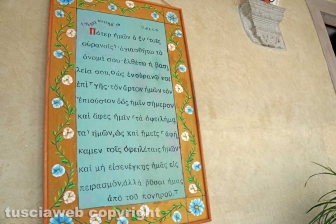 Πάτερ ἡμῶν ὁ ἐν τοῖς
οὐρανοῖς· ἁγιασθήτω τὸ
ὄνομά σου· ἐλθέτω ἡ βασι
λεία σου, ὡς ἐν οὐρανῷ καὶ
ἐπὶ γῆς· τὸν ἄρτον ἡμῶν τὸν
ἐπιούσιον δὸς ἡμῖν σήμερον·
καὶ ἄφες ἡμῖν τὰ ὀφειλήμα
τα ἡμῶν, ὡς καὶ ἡμεῖς ἀφή
καμεν τοῖς ὀφειλέταις ἡμῶν
καὶ μὴ εἰσενέγκῃς ἡμᾶς εἰς
πειρασμόν, ἀλλὰ ῥῦσαι ἡμᾶς
ἀπὸ τοῦ πονηροῦ.
tusciaweb copyright